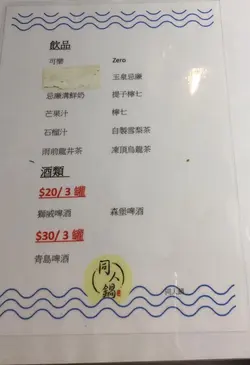 飲品
可樂 Zero
玉泉忌廉
忌廉溝鮮奶 提子檸七
芒果汁 檸七
石榴汁 自製雪梨茶
雨前龍井茶 凍頂烏龍茶
酒類
$20/ 3 罐
獅威啤酒 森堡啤酒
$30/ 3 罐
青島啤酒
同人鍋
同人鍋